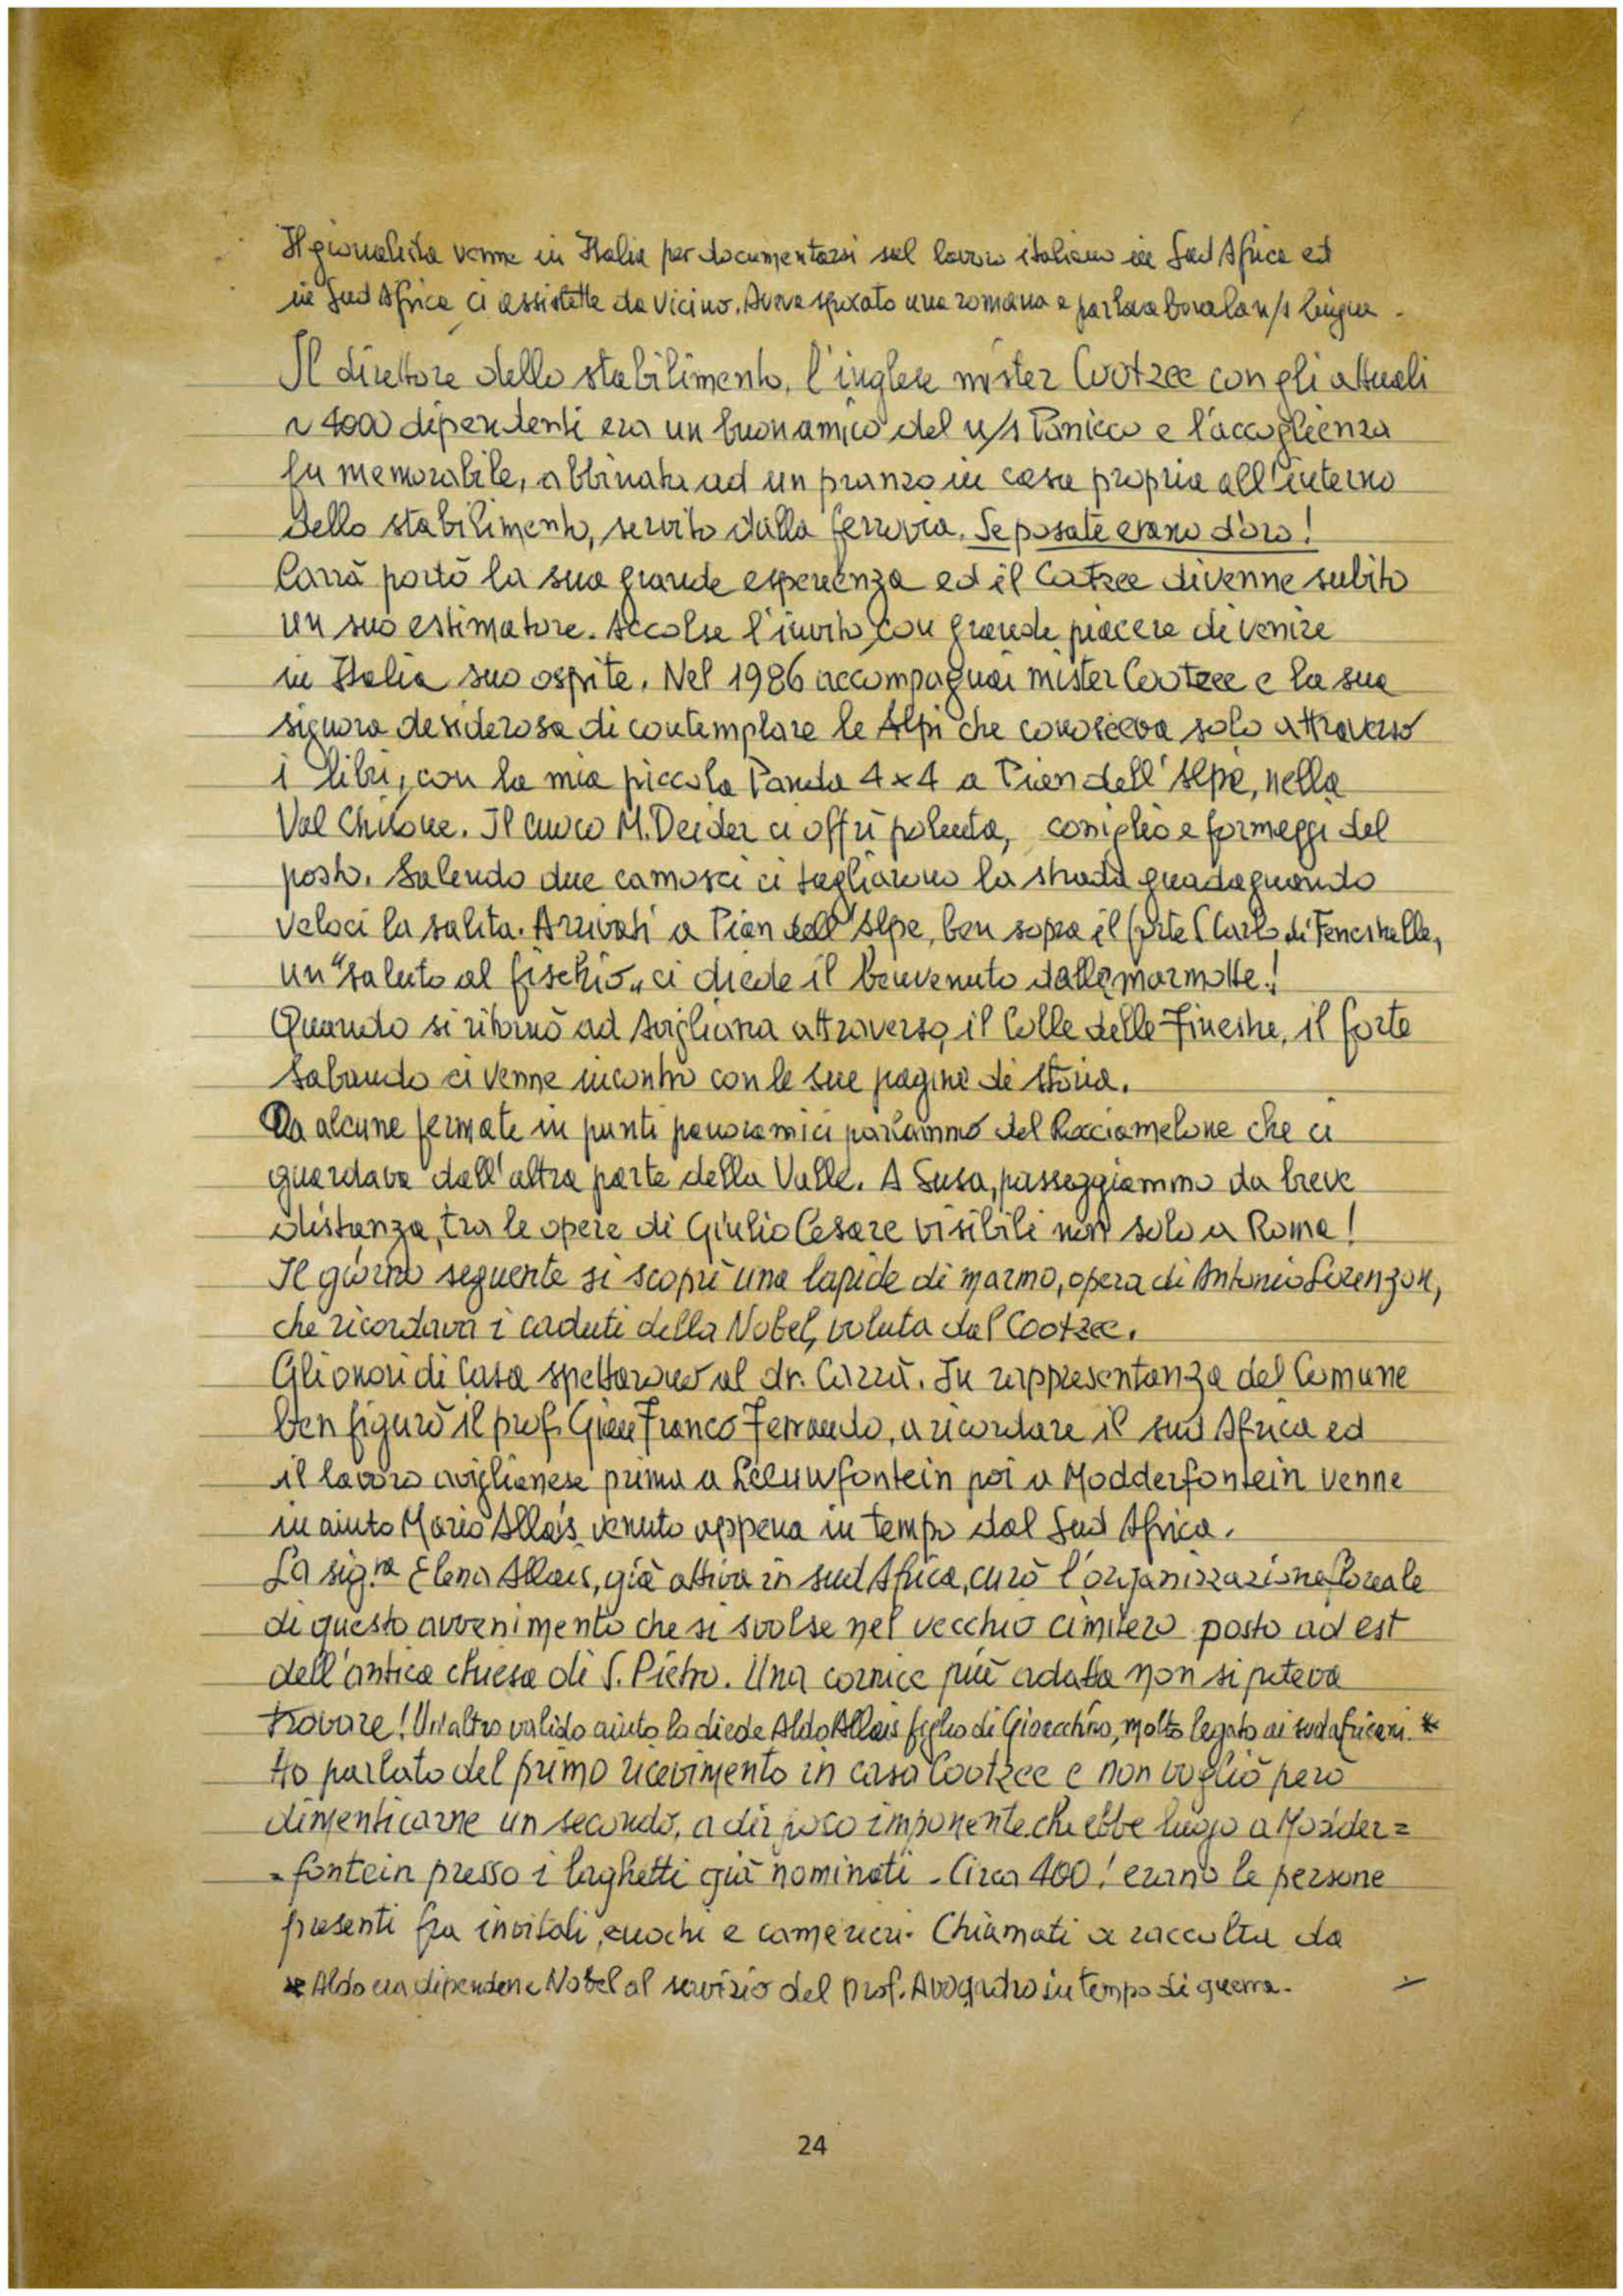 Il giornalista venne in Italia per documentarsi sul lavoro italiano in Sud Africa ed
in Sud Africa ci assistette da vicino. Aveva sposato una romana e parlava la n/s lingua.
Il direttore dello stabilimento, l'inglese mister Cootzee con gli attuali
~ 4000 dipendenti era un buon amico del n/s Panicco e l'accoglienza
fu memorabile, abbinata ad un pranzo in casa propria all'interno
dello stabilimento, servito dalla ferrovia. Le posate erano d'oro!
Carrà portò la sua grande esperienza ed il Cotzee divenne subito
un suo estimatore. Accolse l'invito con grande piacere di venire
in Italia suo ospite. Nel 1986 accompagnai mister Cootzee e la sua
signora desiderosa di contemplare le Alpi che conosceva solo attraverso
i libri, con la mia piccola Panda 4x4 a Pian dell'Alpe, nella
Val Chisone. Il cuoco M. Deider ci offrì polenta, coniglio e formaggi del
posto. Salendo due camosci ci tagliarono la strada guadagnando
veloci la salita. Arrivati a Pian dell'Alpe, ben sopra il forte S. Carlo di Fenestrelle,
un "saluto al fischio" ci diede il benvenuto dalle marmotte!
Quando si ritornò ad Avigliana attraverso il Colle delle Finestre, il forte
Sabaudo ci venne incontro con le sue pagine di storia.
Da alcune fermate in punti panoramici parlammo del Rocciamelone che ci
guardava dall'altra parte della Valle. A Susa, passeggiammo da breve
distanza, tra le opere di Giulio Cesare visibili non solo a Roma!
Il giorno seguente si scoprì una lapide di marmo, opera di Antonio Lorenzon,
che ricordava i caduti della Nobel, voluta dal Cootzee.
Gli onori di Casa spettarono al dr. In rappresentanza del Comune
ben figurò il prof. Gian Franco Ferrando, a ricordare il sud Africa ed
il lavoro aviglianese prima a Leeuwfontein poi a Modderfontein venne
in aiuto Mario Allais venuto appena in tempo dal Sud Africa.
La sig.ra Elena Allais, già attiva in sud Africa, curò l'organizzazione floreale
di questo avvenimento che si svolse nel vecchio cimitero posto ad est
dell'antica chiesa di S. Pietro. Una cornice più adatta non si poteva
trovare! Un'altro valido aiuto lo diede Aldo Allais figlio di Gioacchino, molto legato ai sudafricani. *
Ho parlato del primo ricevimento in casa Cootzee e non voglio però
dimenticarne un secondo, a dir poco imponente che ebbe luogo a Modder=
=fontein presso i laghetti già nominati - Circa 400! erano le persone
presenti fra invitati, cuochi e camerieri. Chiamati a raccolta da
* Aldo era dipendene Nobel al servizio del prof. Avogadro in tempo di guerra.
24